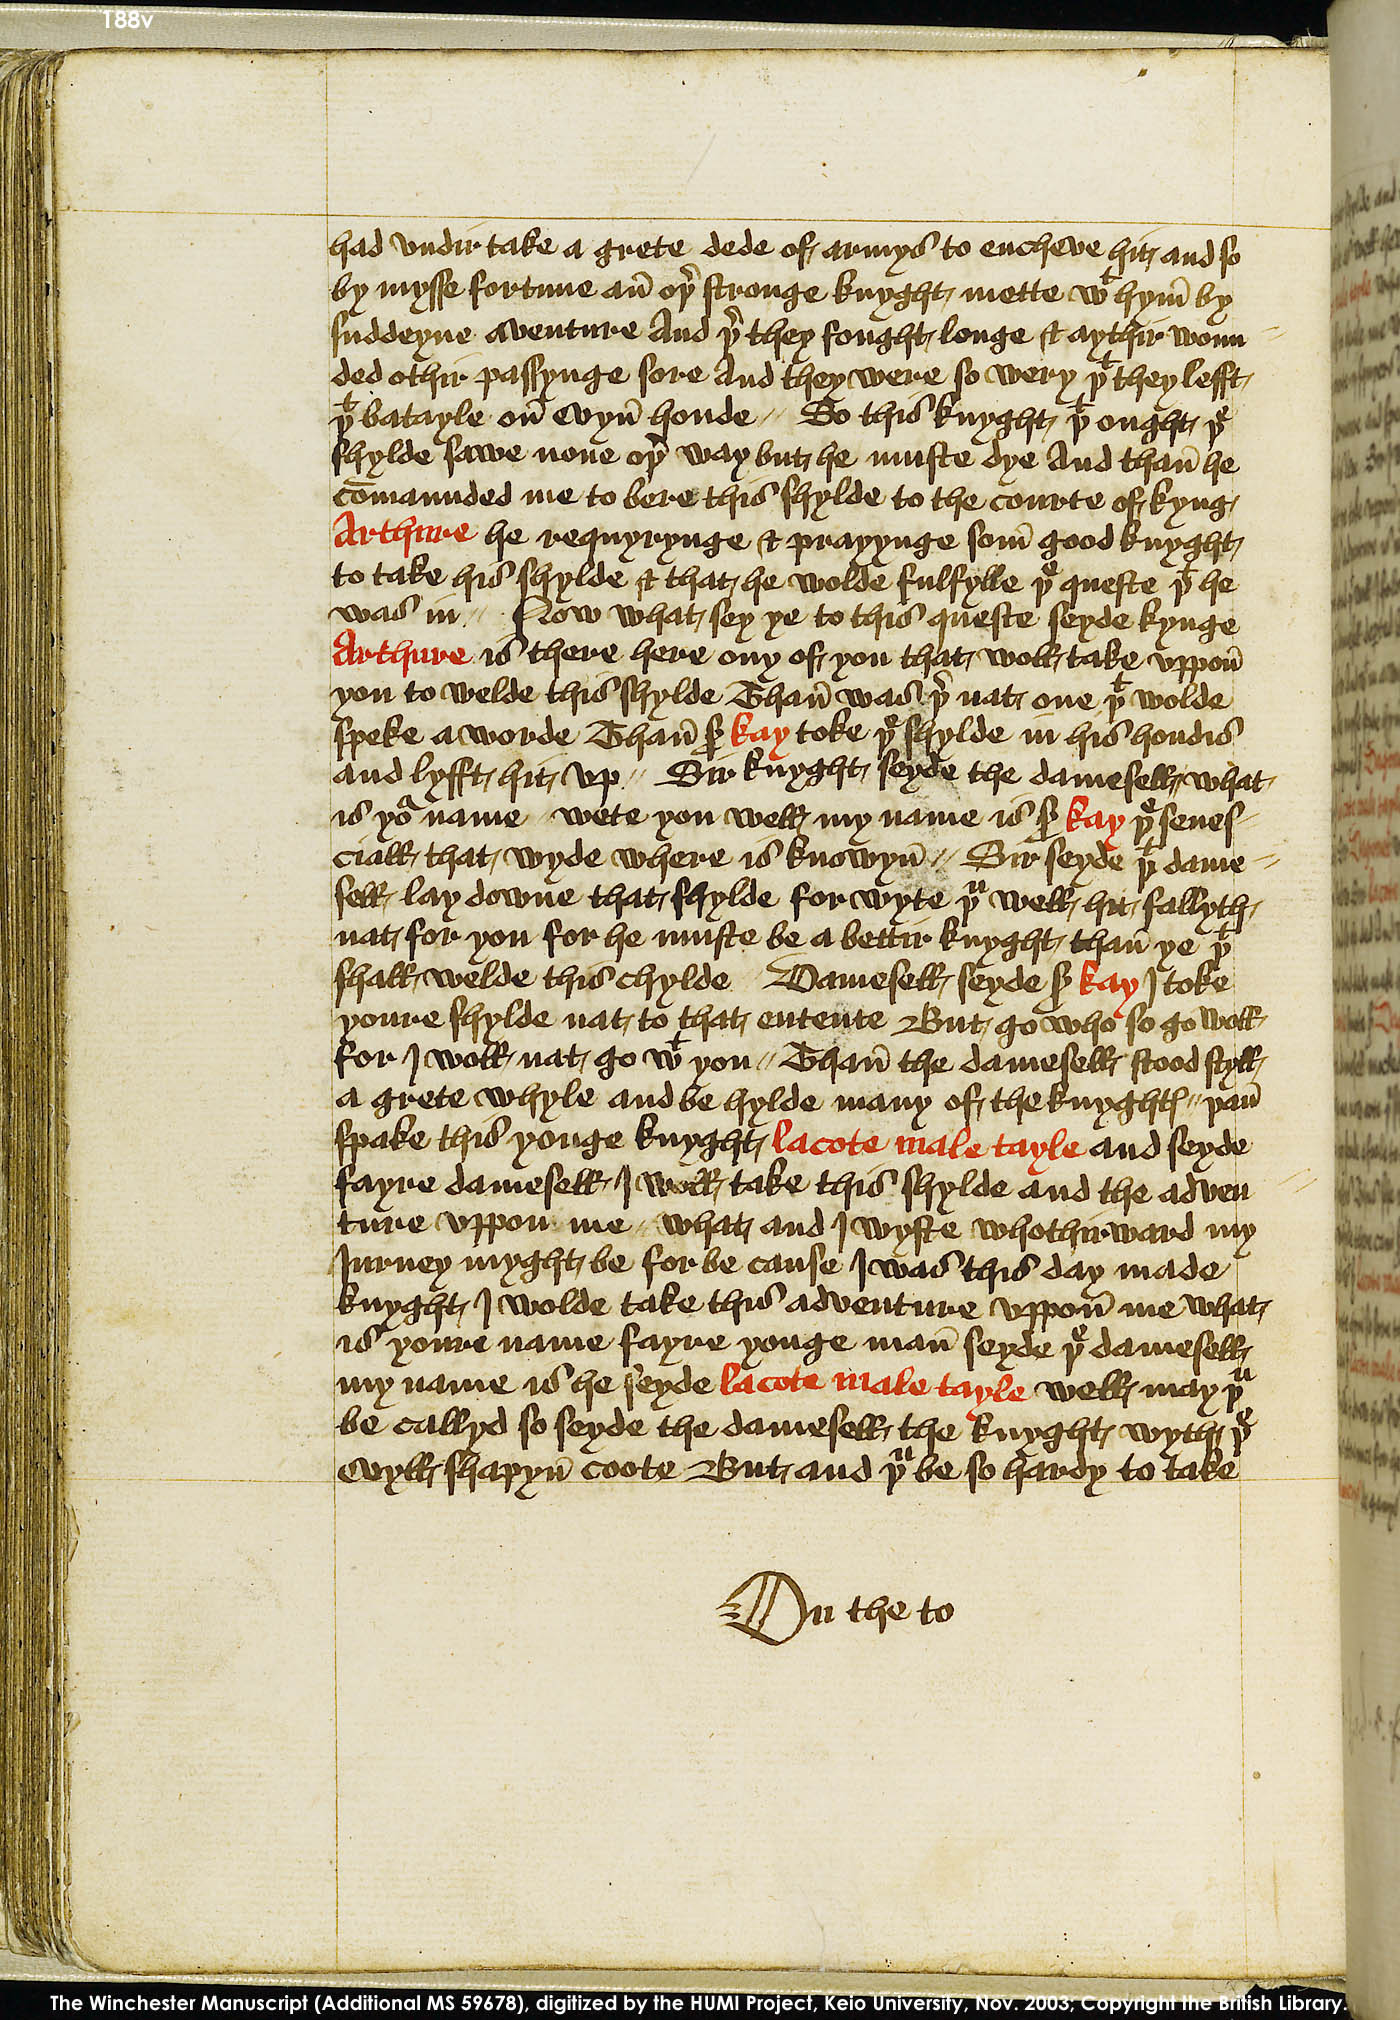 188v
had vndir take a grete dede of armys to encheve hit and so
by mysse fortune an̄ oþ͛ stronge knyght mette wᵗ hym̄ by
suddeyne aventure And þ͛ they fought longe & aythir woun
ded othir passynge sore And they were so wery þᵗ they lefft
þᵗ batayle on̄ evyn̄ honde // So this knyght þᵗ ought þᵉ
shylde sawe none oþ͛ way but he muste dye And than̄ he
cōmaunded me to bere this shylde to the courte of kyng
Arthure he requyrynge & prayynge som̄ good knyght
to take his shylde & that he wolde fulfylle þᵉ queste þᵗ he
was in // Now what sey ye to this queste seyde kynge
Arthure is there here ony of you that woll take vppon̄
you to welde this shylde Than̄ was þ͛ nat one þᵗ wolde
speke a worde Than̄ s͛ kay toke þᵉ shylde in his hondis
and lyfft hit vp // Sir knyght seyde the damesell what
is yoᵃ name // wete you well my name is s͛ kay þᵉ senes
ciall that wyde where is knowyn̄ // Sir seyde þᵗ dame
sell lay downe that shylde for wyte þᵘ well hit fallyth
nat for you for he muste be a bettir knyght than̄ ye þᵗ
shall welde this chylde Damesell seyde s͛ kay I toke
youre shylde nat to that entente But go who so go woll
for I woll nat go wᵗ you // Than̄ the damesell stood styll
a grete whyle and be hylde many of the knyghtꝭ // þan̄
spake this yonge knyght lacote male tayle and seyde
fayre damesell I woll take this shylde and the adven
ture vppon me // what and I wyste whothirward my
Iurney myght be for be cause I was this day made
knyght I wolde take this adventure vppon̄ me what
is youre name fayre yonge man̄ seyde þᵉ damesell
my name is he seyde lacote male tayle well may þᵘ
be callyd so seyde the damesell the knyght wyth þᵉ
evyll shapyn̄ coote But and þᵘ be so hardy to take
On the to
The Winchester Manuscript (Additional MS 59678), digitized by the HUMI Project, Keio University, Nov. 2003; Copyright the British Library.